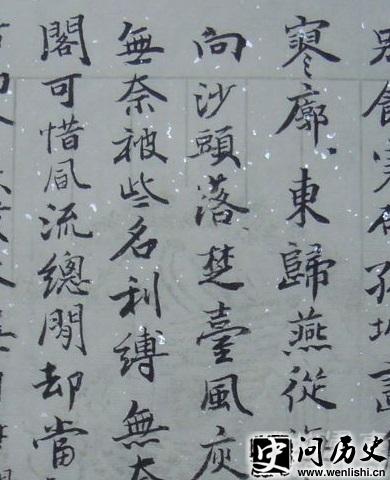 孤城畫
寥廓東歸燕從海
向沙頭落楚臺風
無奈被些名利縛無奈
閣可惜風流總閒却當
问历史
www.wenlishi.cn